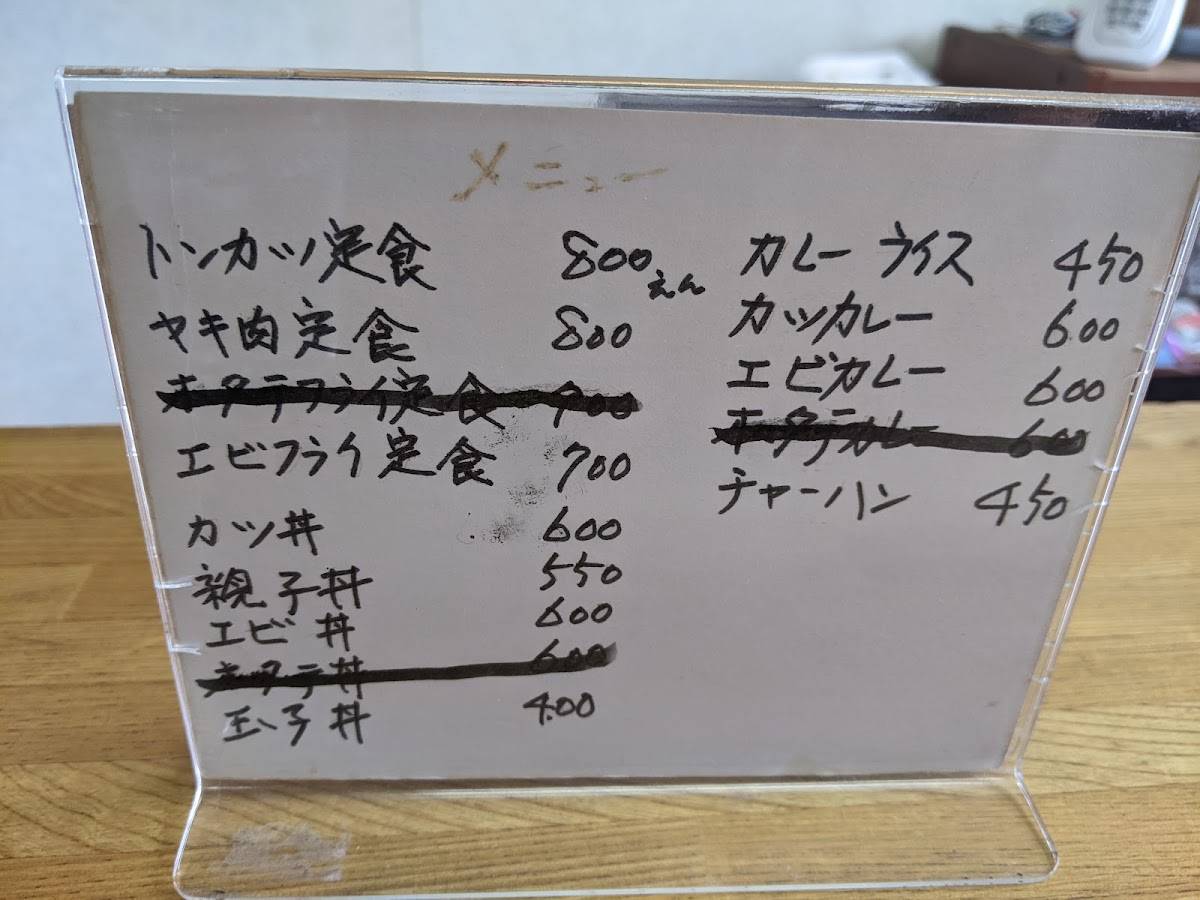 メニュー
トンカツ定食 800えん
ヤキ肉定食 800
ホタテフライ定食 900
エビフライ定食 700
カツ丼 600
親子丼 550
エビ丼 600
ホタテ丼 600
玉子丼 400
カレーライス 450
カツカレー 600
エビカレー 600
ホタテカレー 600
チャーハン 450